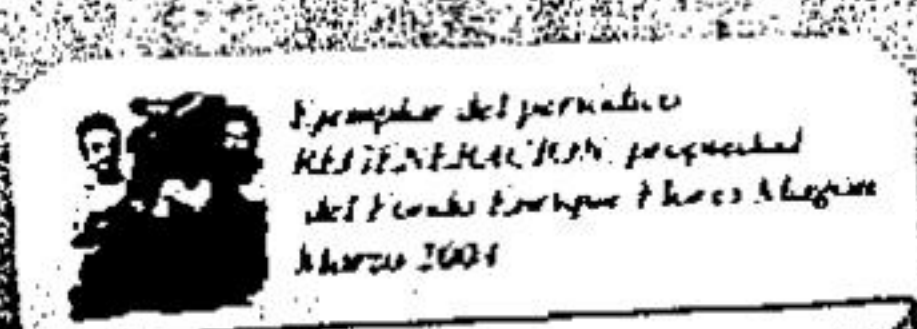 Ejemplar del periódico
REGENERACIÓN propiedad
del Fondo Enrique Flores Magón
Marzo 2004